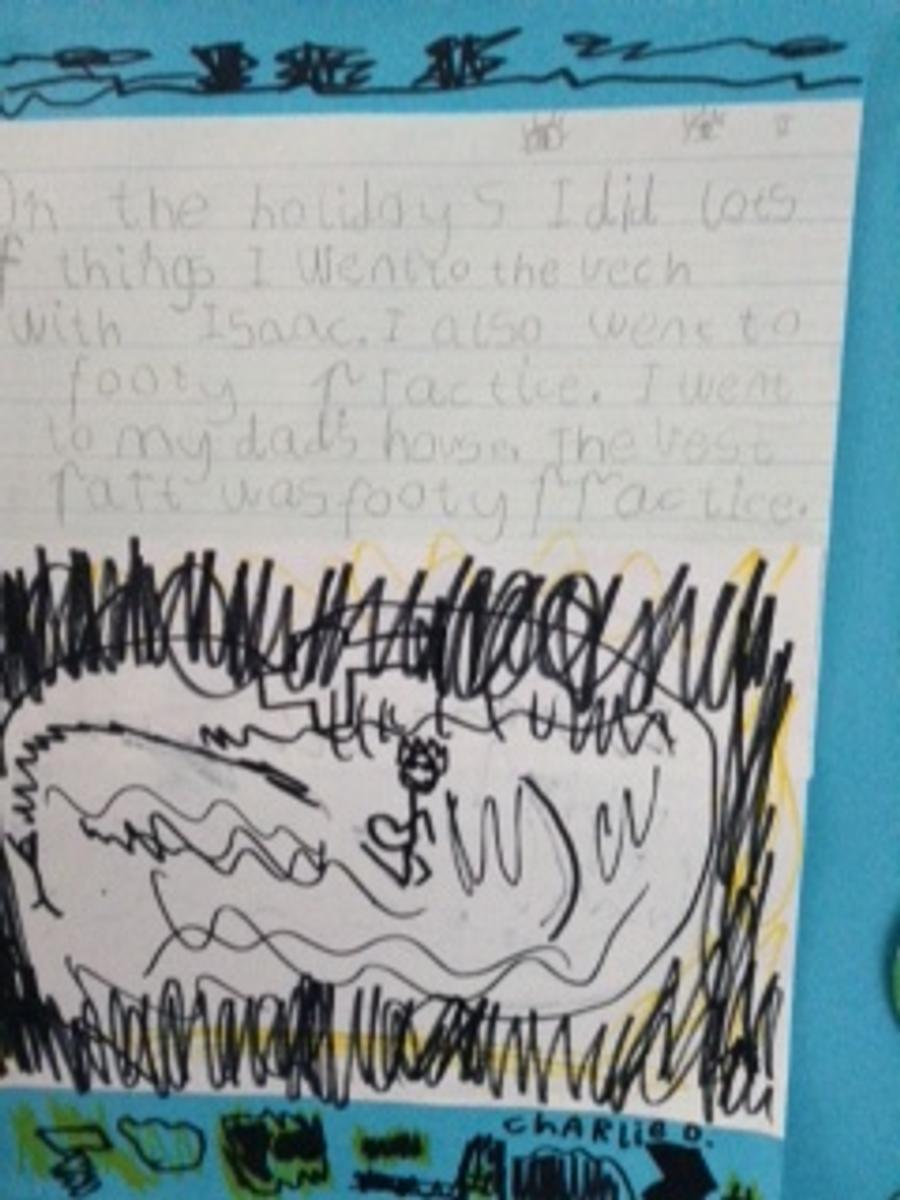 On the holidays I did lots
of things I Went to the vech
with Isaac. I also went to
footy Practice. I went
to my dad's house. The vest
Part was footy Practice.
CHARLiE D.